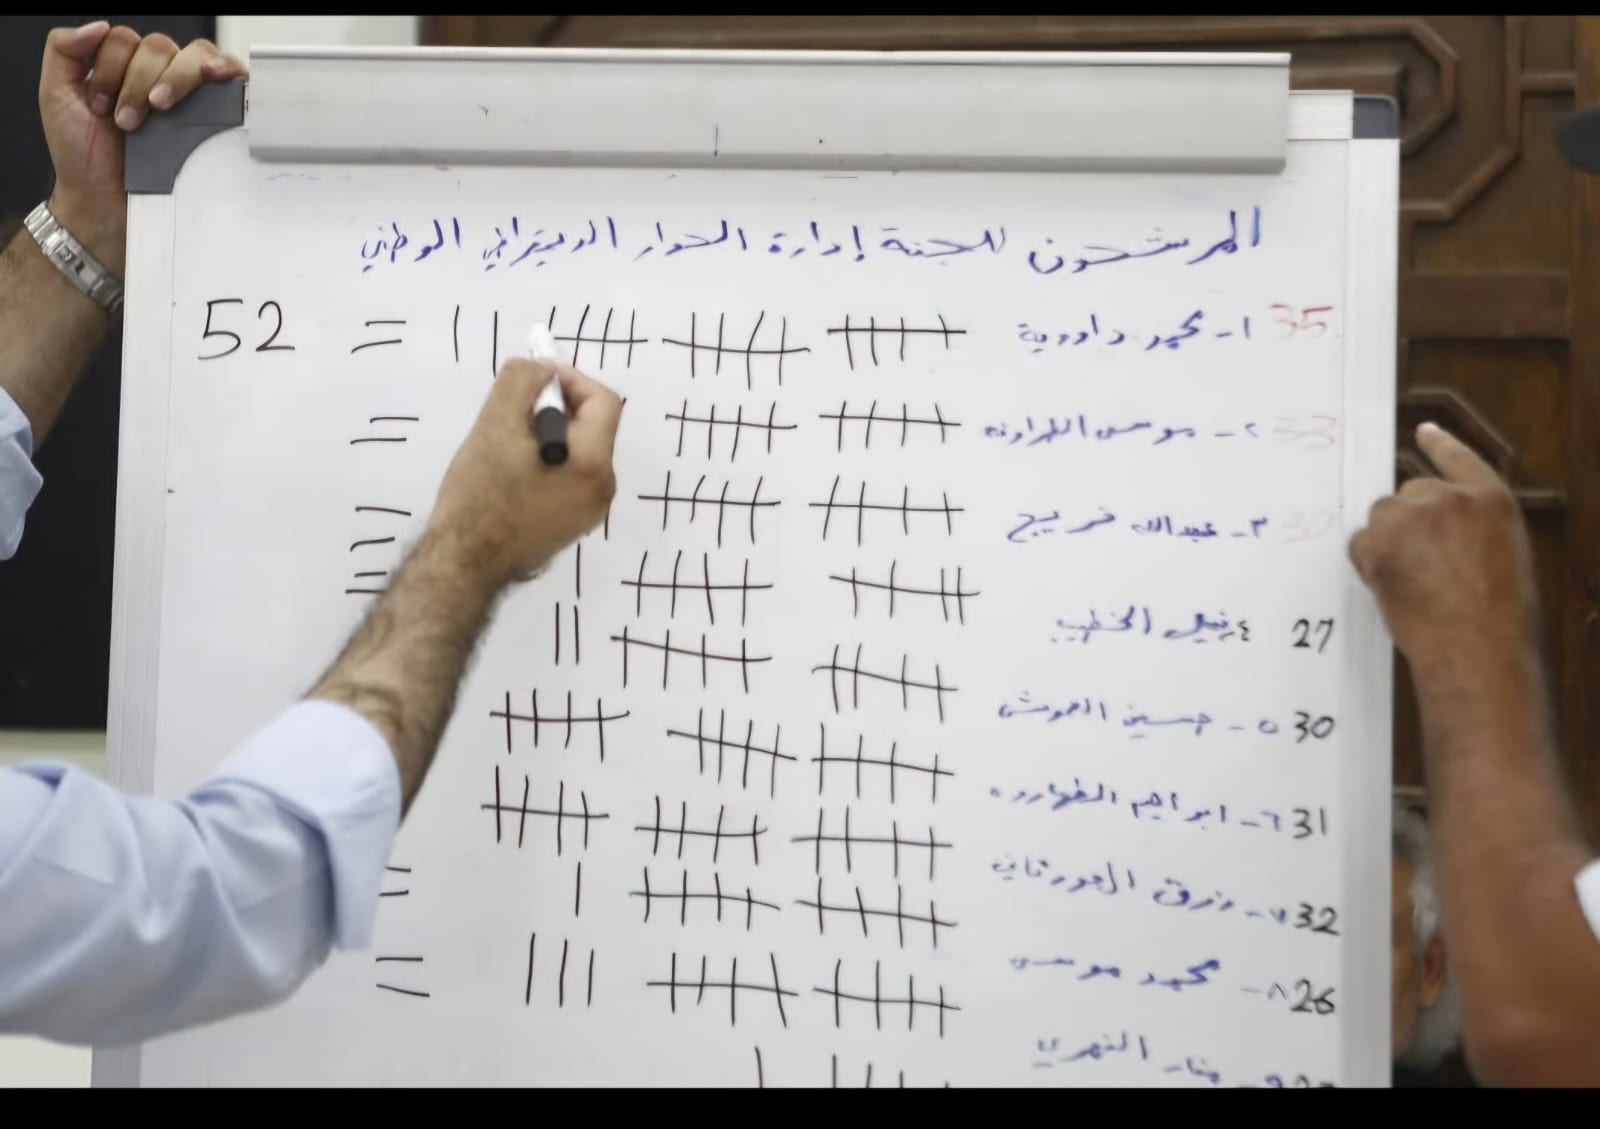 المرشحون للجنة إدارة الحوار الديمقراطي الوطني
35 ١- محمد داودية = 52
33 ٢- موسى الطراونه =
30 ٣- عبدالله فريج =
27 ٤- نبيل الخطيب =
30 ٥- حسين
31 ٦- ابراهيم
32 ٧- رزق =
26 ٨- محمد موسى =
٩- منار النمري